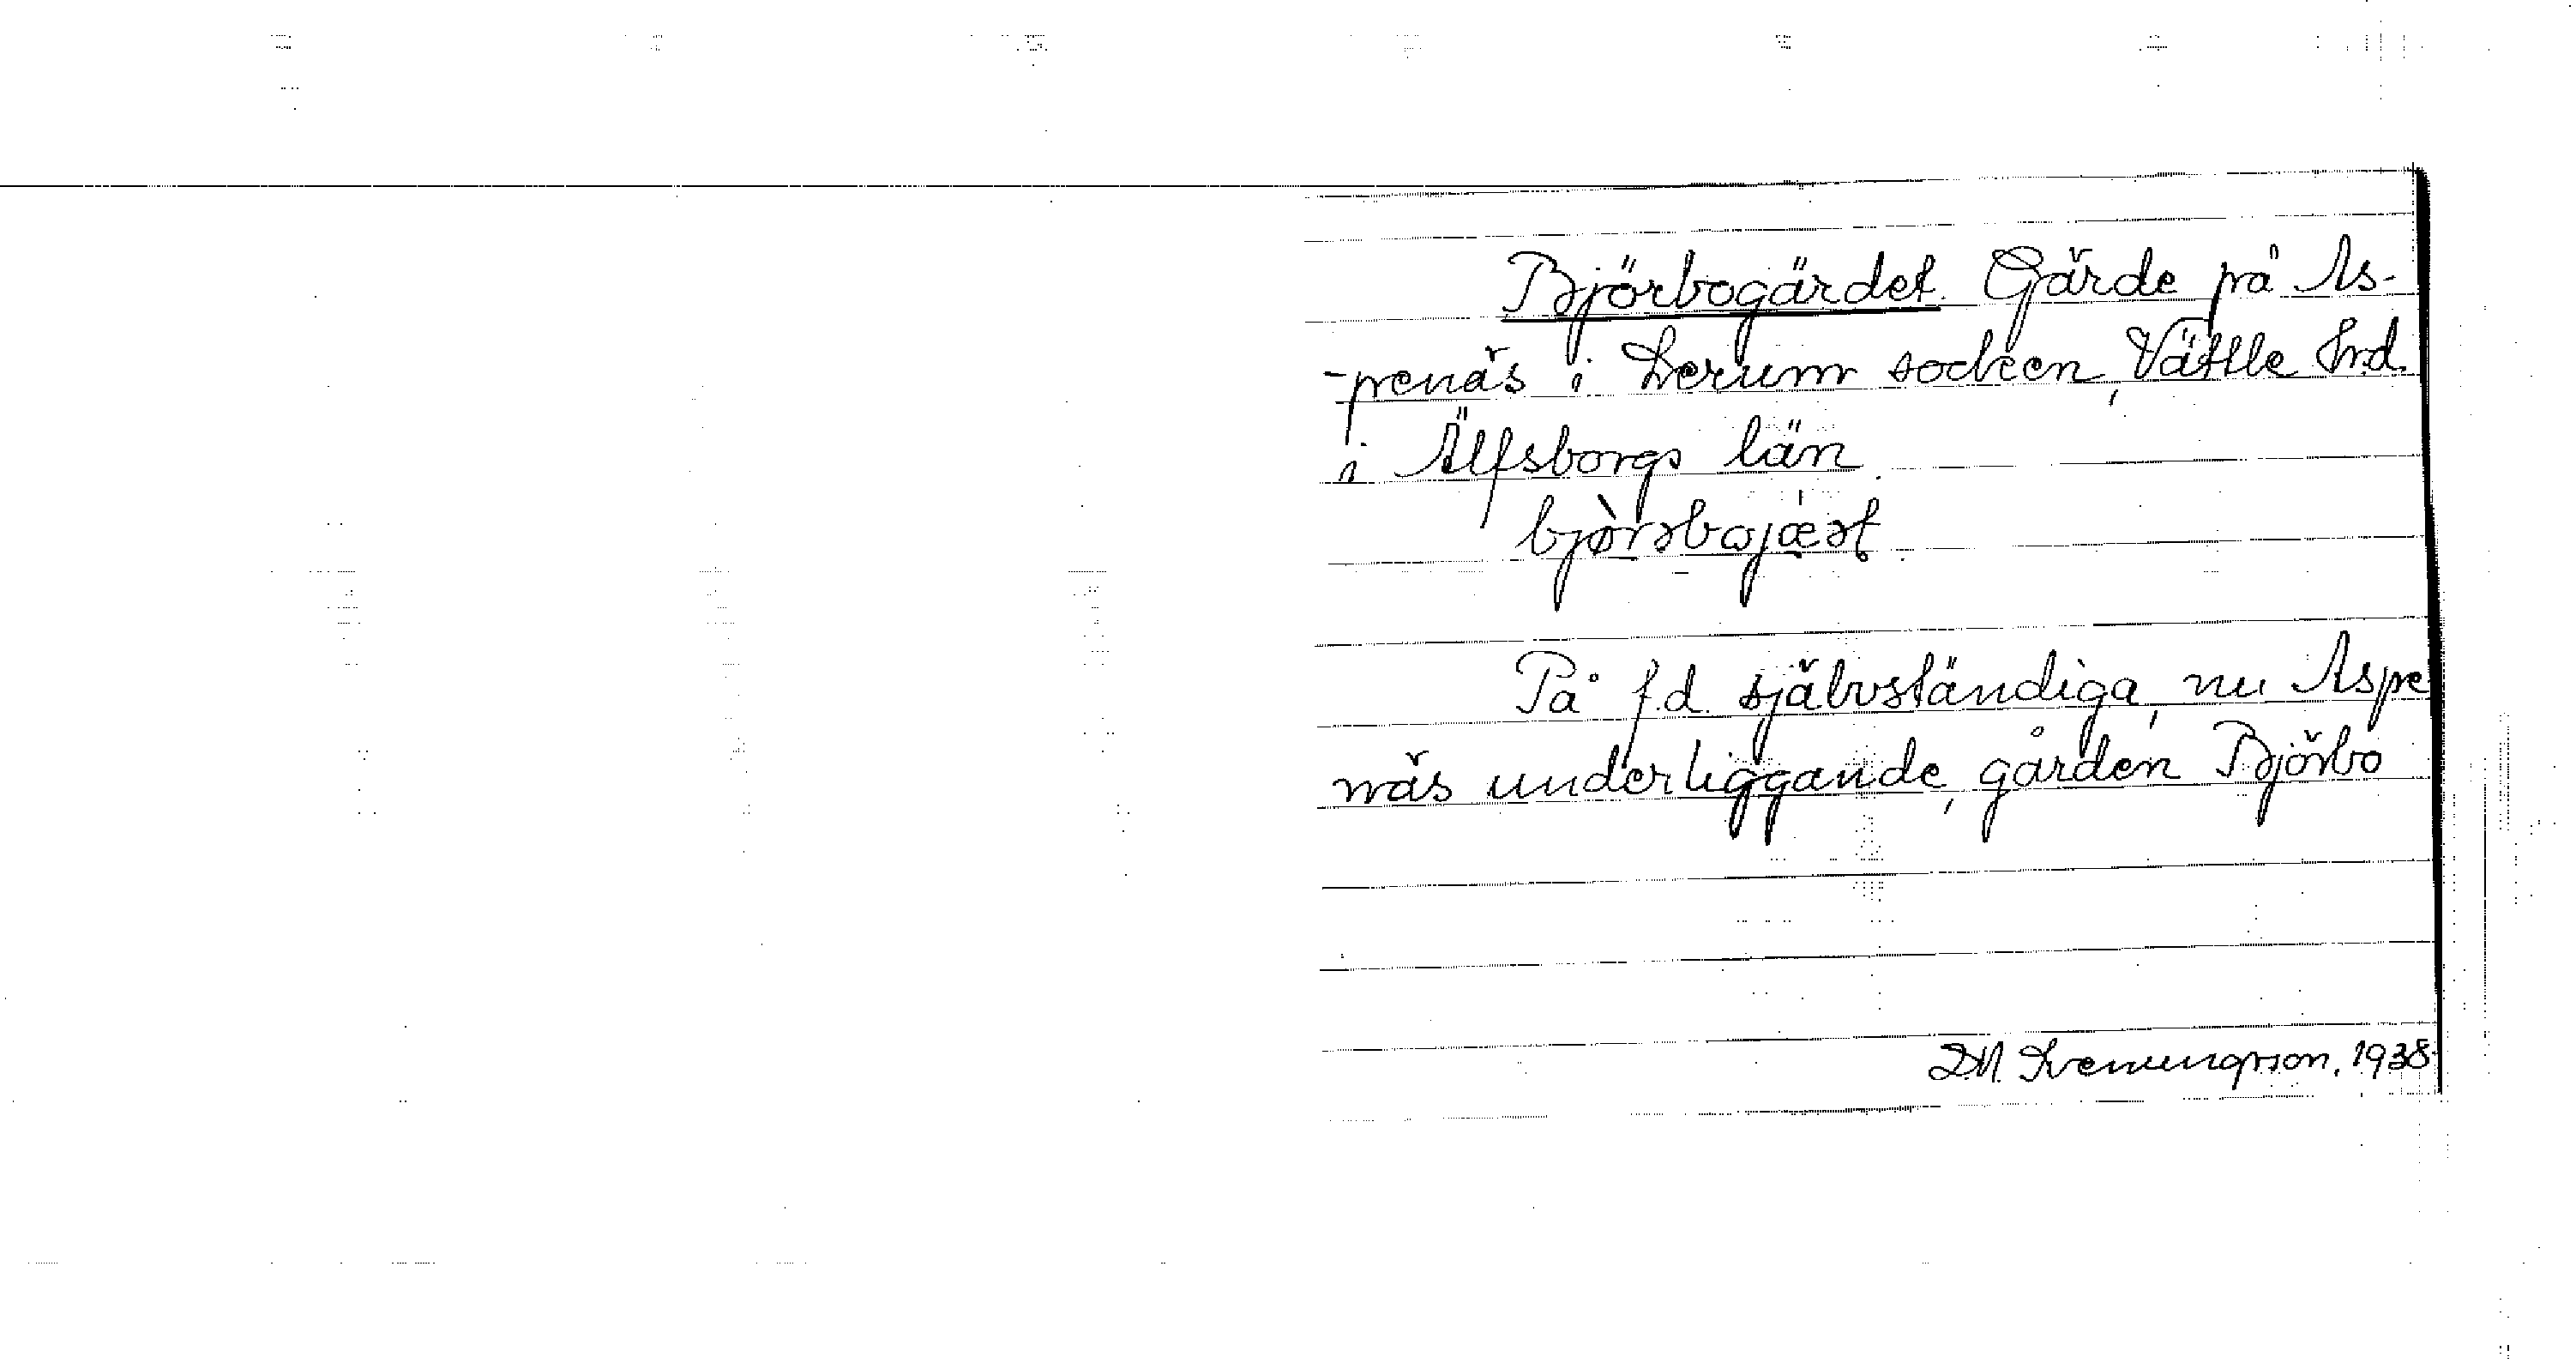 Björbogärdet. Gärde på As-
-penäs i Lerum socken, Vättle hrd.
i Älfsborgs län.
bjòrsbojæst.
På f.d. självständiga, nu Aspe
näs underliggande, gården Björbo
1938